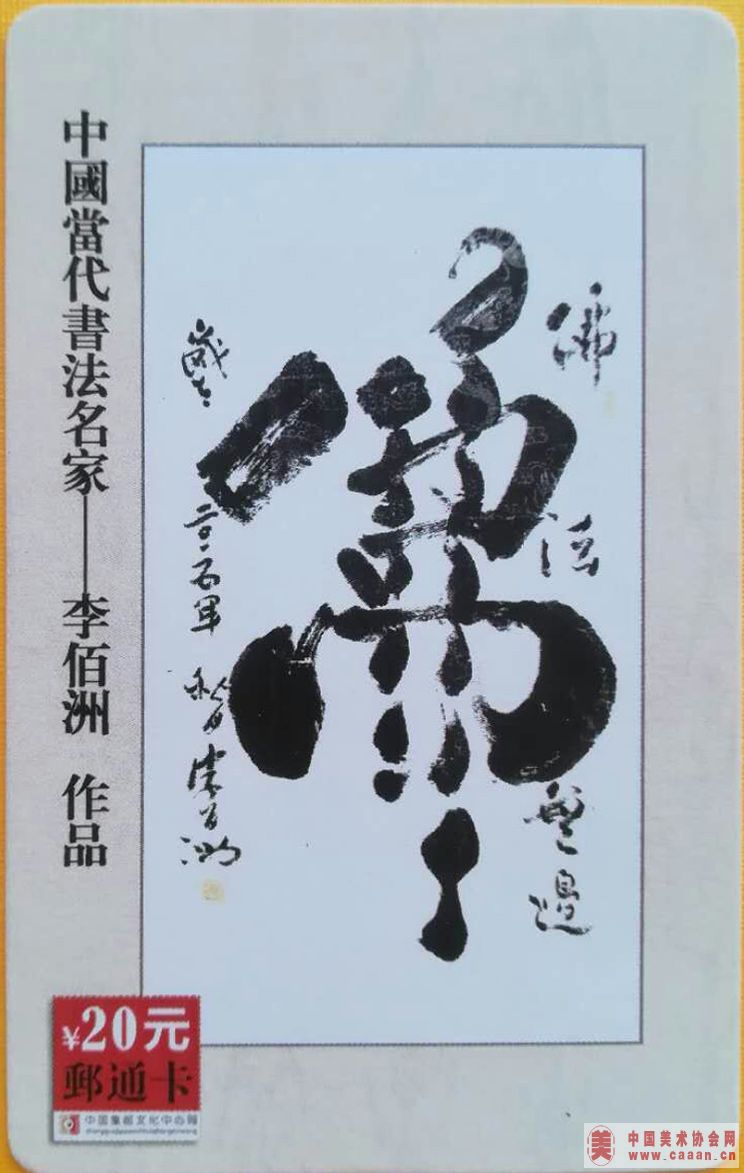 中國當代書法名家——李佰洲 作品
佛
佛法無邊
歲在
二〇一五年秋月李佰洲
¥20元
郵通卡
中国集邮文化中心网
中国美术协会网
www.caaan.cn